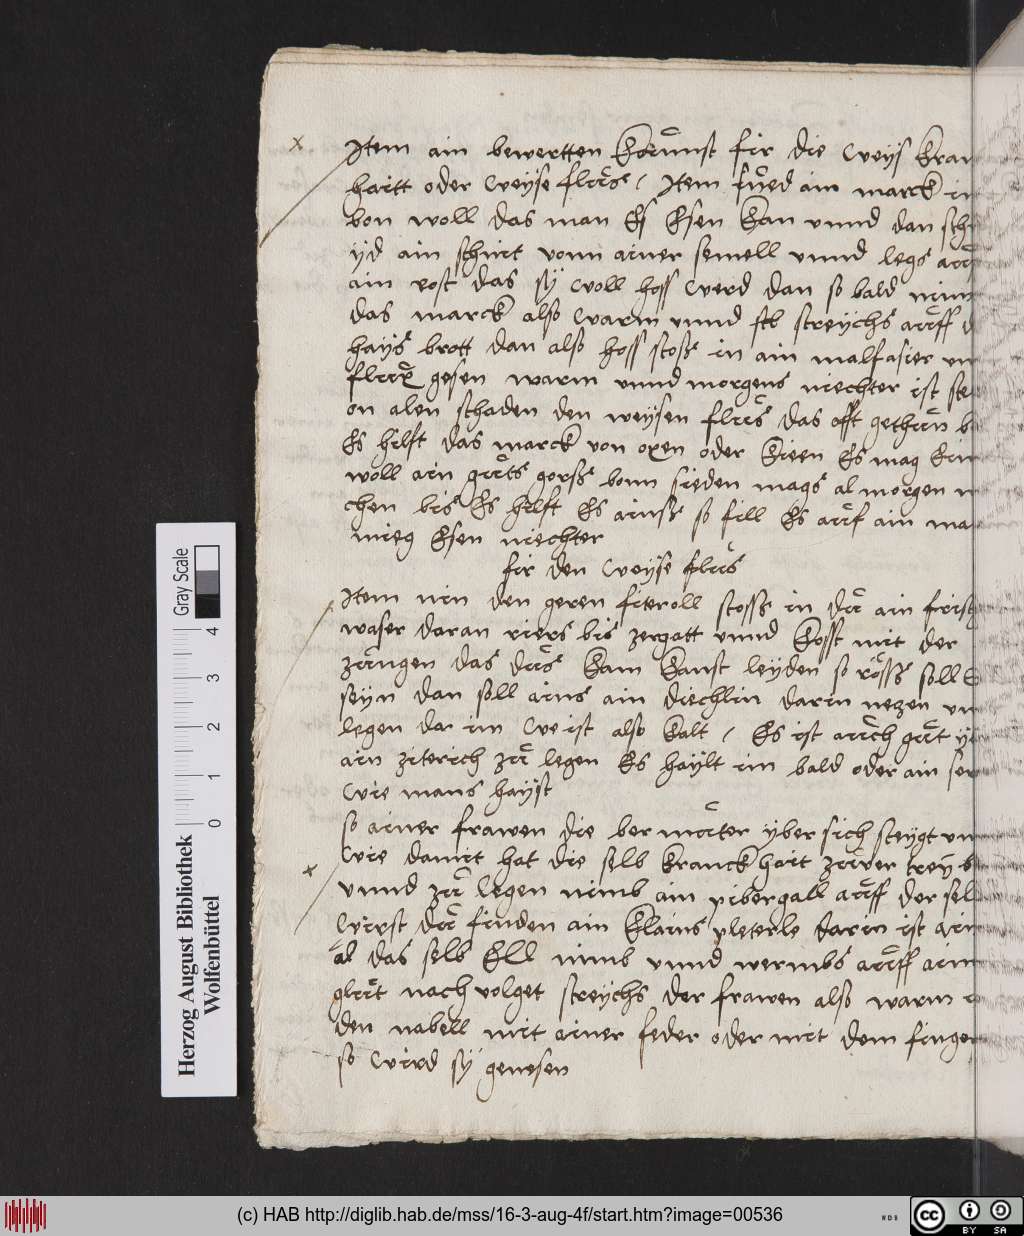 Item ain bewertten Kxunst fir die weys kran
haitt oder weyse fluͦs / Item sued ain marck in
bon woll das man es Esen kan vnnd dan
yd ain schnit vonn ainer semell vnnd legs auf
ain rost das sy woll hoss werd dan so bald nim
das marck also warm vnnd streychs auff
hays brott dan also hoss stoss in ain malfasier
gesen warm vnnd morgens niechter ist
on alen schaden den weysen fluͦs das offt gethan
Es hilft das marck von oxen oder kieen Es mag
woll ain guͦts gorss bonn sieden mags al morgen
chen bis Es hilft Es ainss so fill Es auf ain
mieg Esen niechter
fir den weyse fluͦs
Item nin den geren fiteroll stoss in duͦ ain frisch
waser daran riers bis zergatt vnnd kosst mit der
zungen das duͦs kam kanst leyden so ross soll
seyn dan soll ains ain diechlin darin nezen
legen da im we ist also kalt / Es ist auch guͦt
ain ziterich zuͦ legen Es haylt im bald oder ain
wie mans hayst
so ainer frawen die ber muͦter yber sich steygt
wie damit hat die selb kranckhait zuͦver
vnnd zuͦ legen nimb ain pibergall auff der
wirst duͦ finden ain klains pleterle darin ist
ăl das selb Ell nimb vnnd wermbs auff
gluͦt nach volget streychs der frawen also warm
den nabell mit ainer feder oder mit dem finger
so wird sy genesen
Herzog August Bibliothek
Wolfenbüttel
0 1 2 3 4
Gray Scale
(c) HAB http://diglib.hab.de/mss/16-3-aug-4f/start.htm?image=00536
cc BY SA